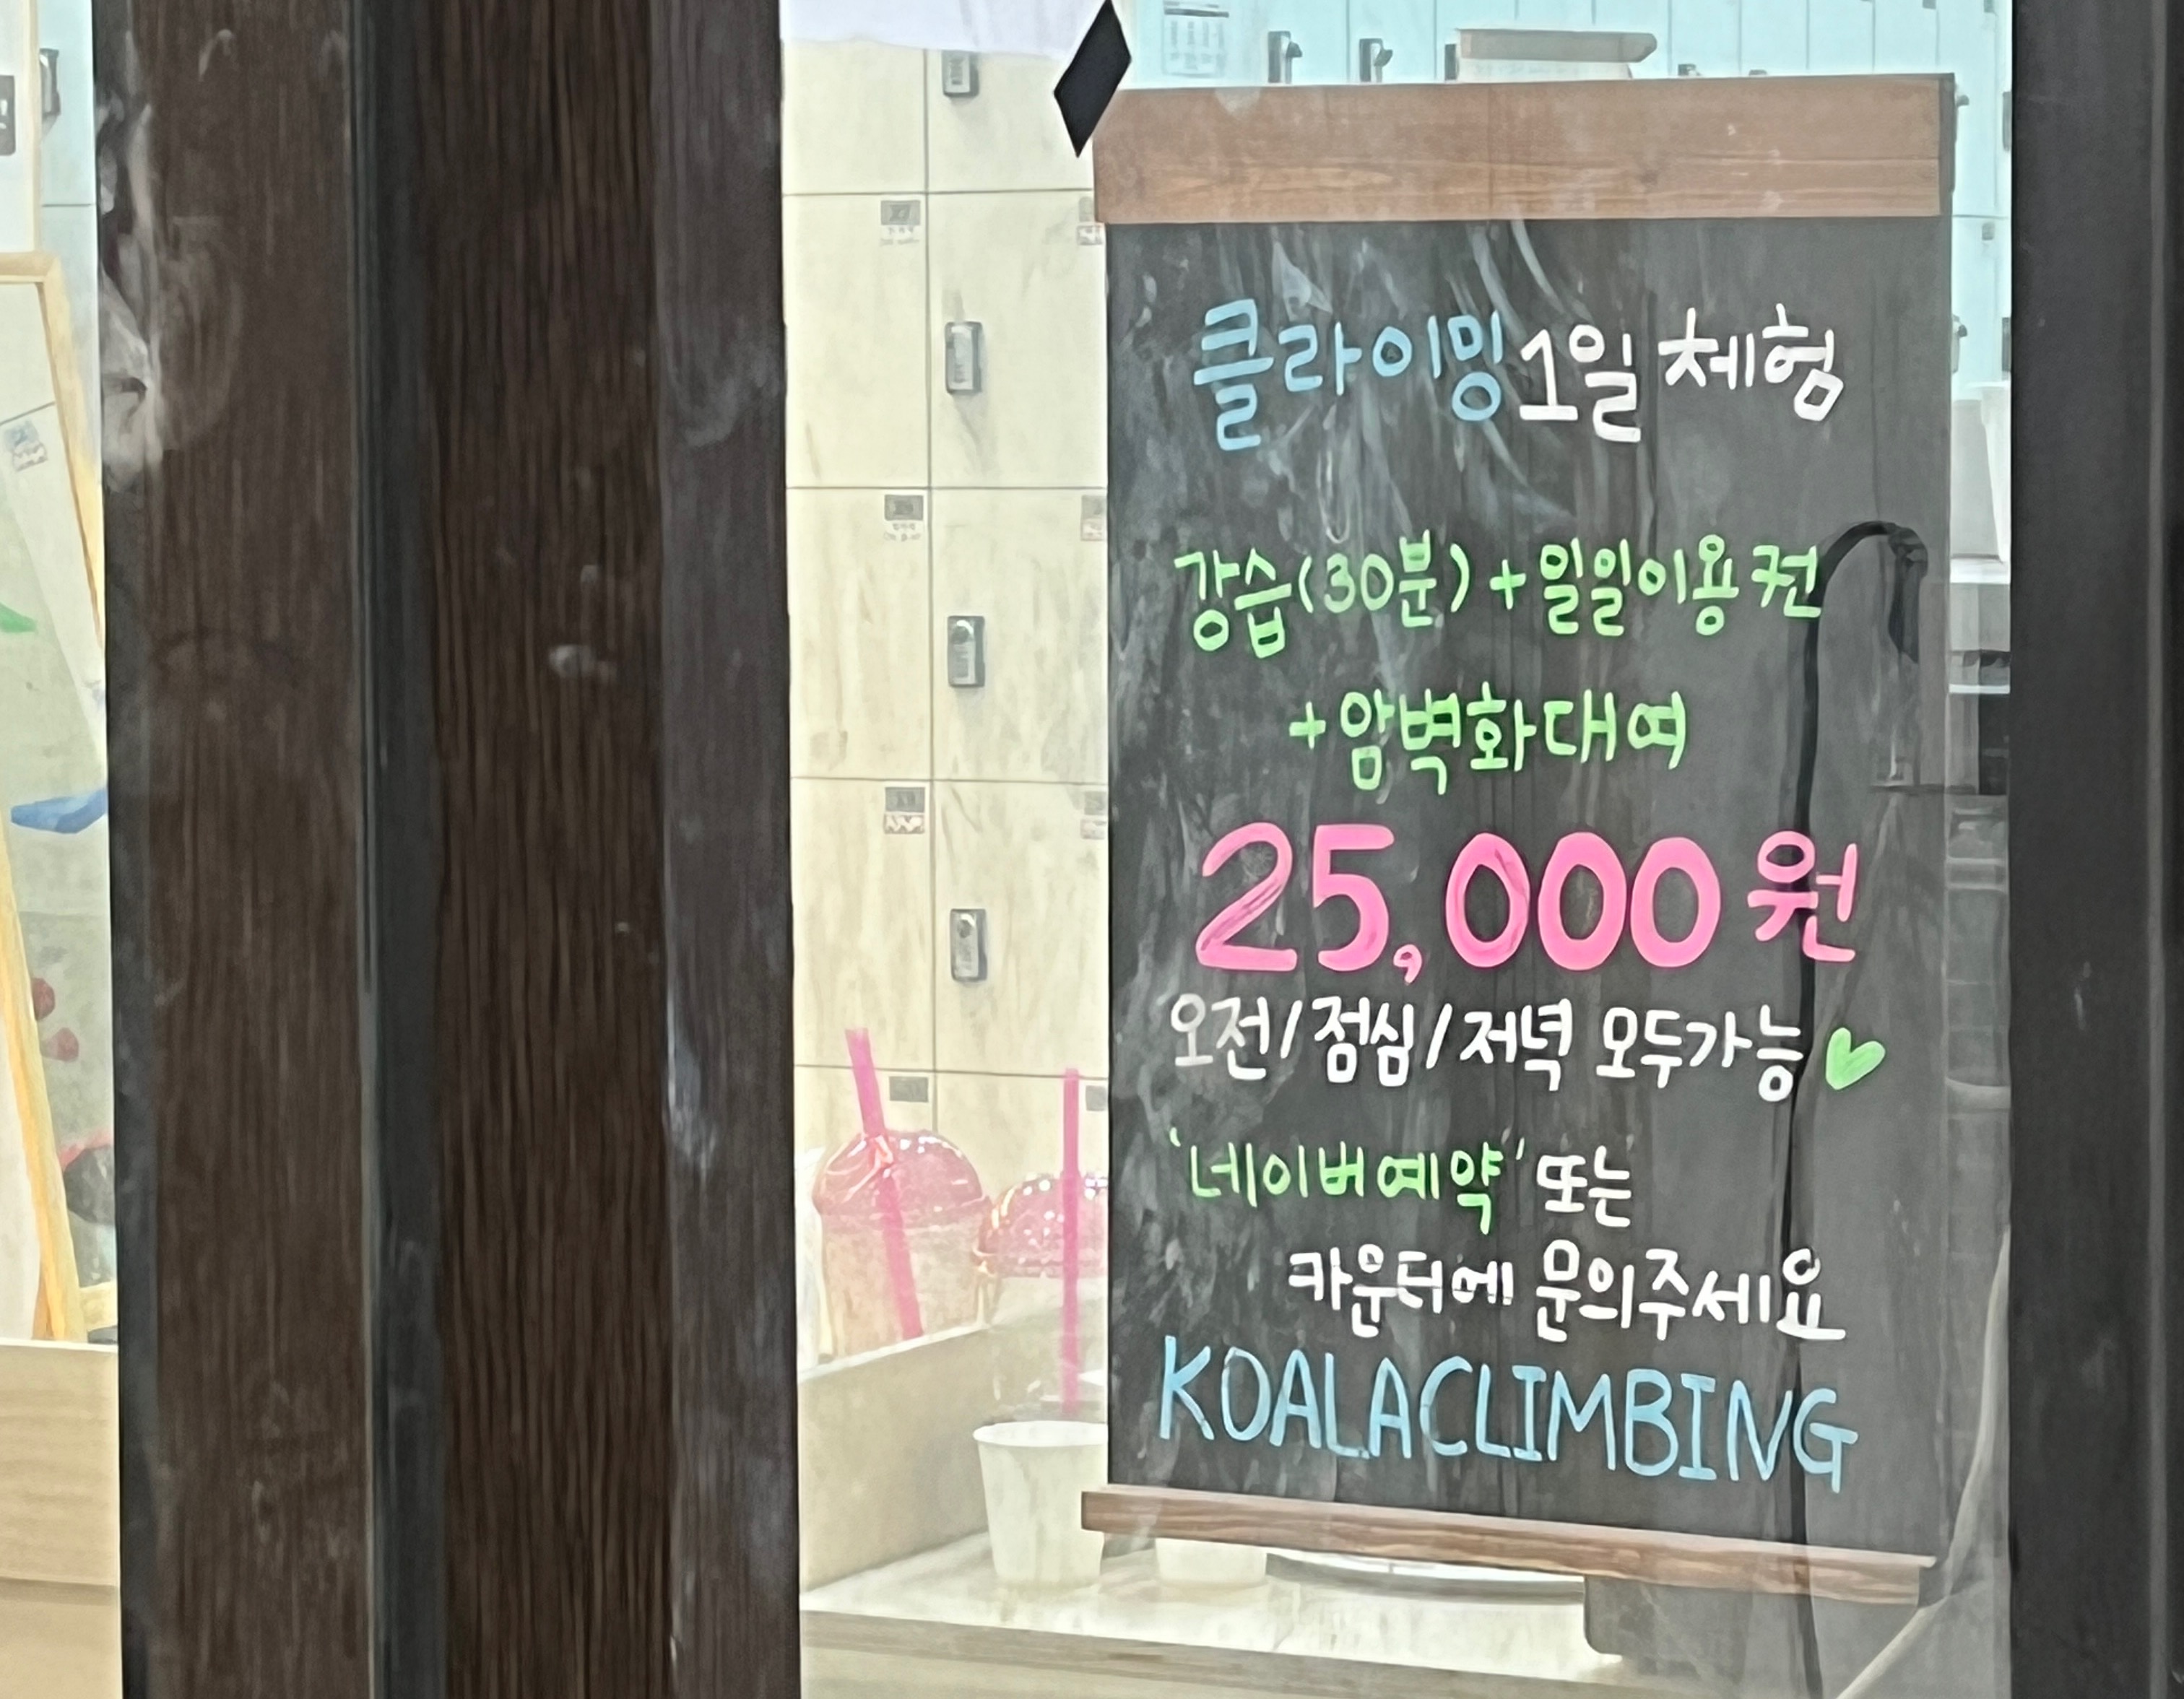 클라이밍 1일 체험
강습(30분) + 일일이용권
+ 암벽화대여
25,000원
오전/점심/저녁 모두가능
'네이버예약' 또는
카운터에 문의주세요
KOALACLIMBING